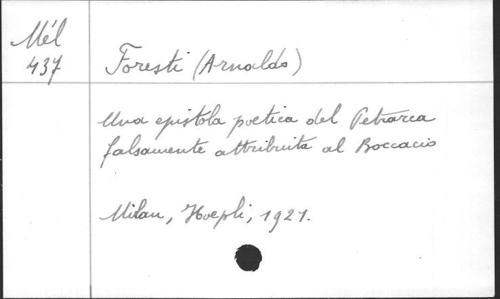 Mél
437
Foresti (Arnaldo)
Una epistola poetica del Petrarca
falsamente attribuita al Boccacio
Milan, Hoepli, 1921.